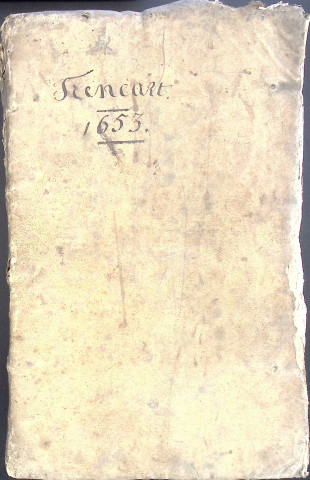 Trencart.
1653.